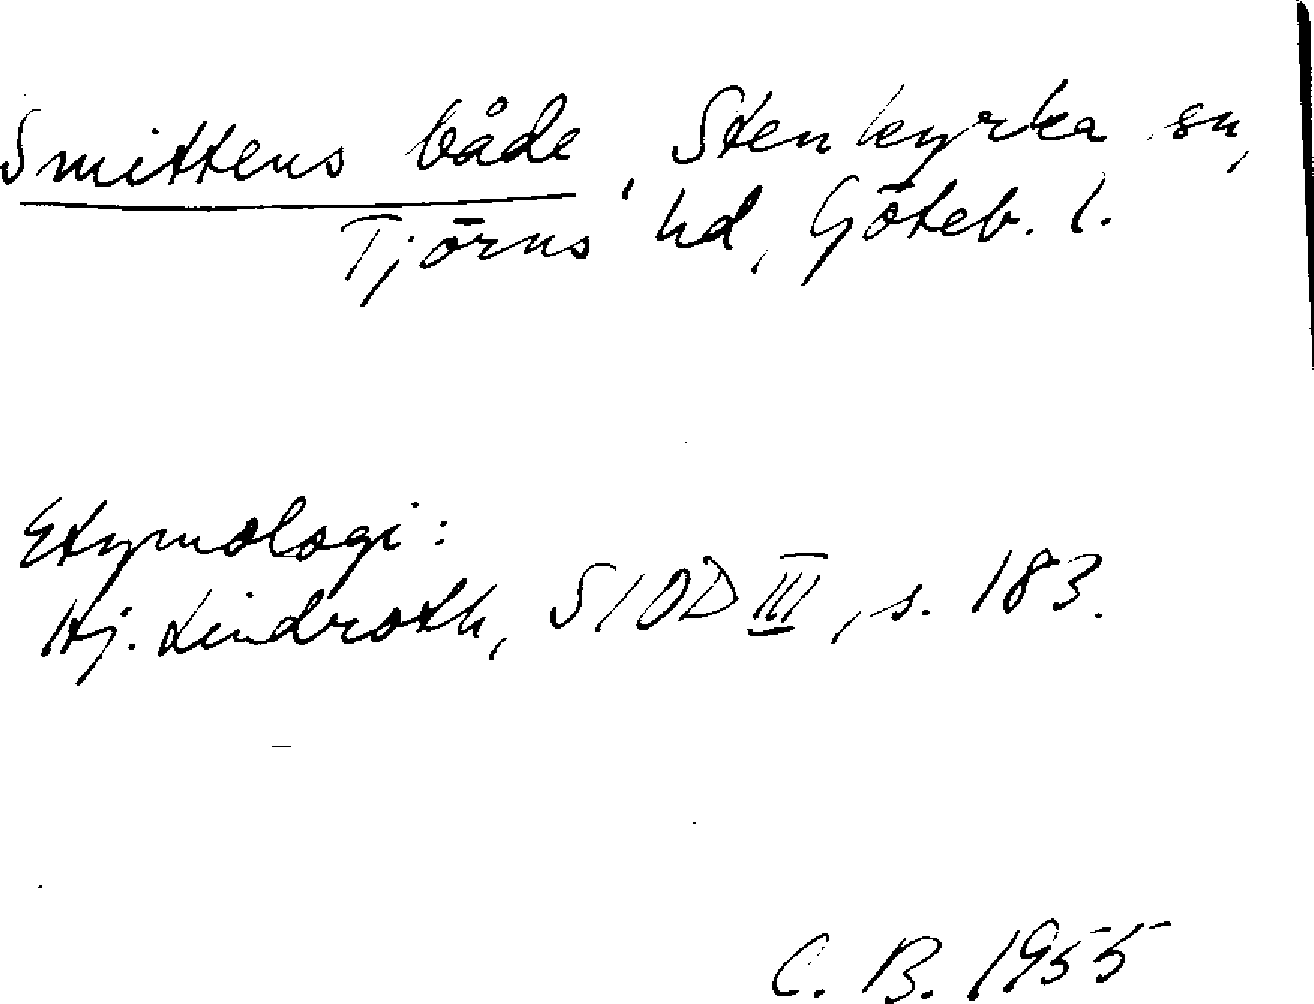 Smittens både, Stenkyrka sn,
Tjörns hd, Göteb. l.
Etymologi:
Hj. Lindroth, SIOD III, s. 183.
C. B. 1955